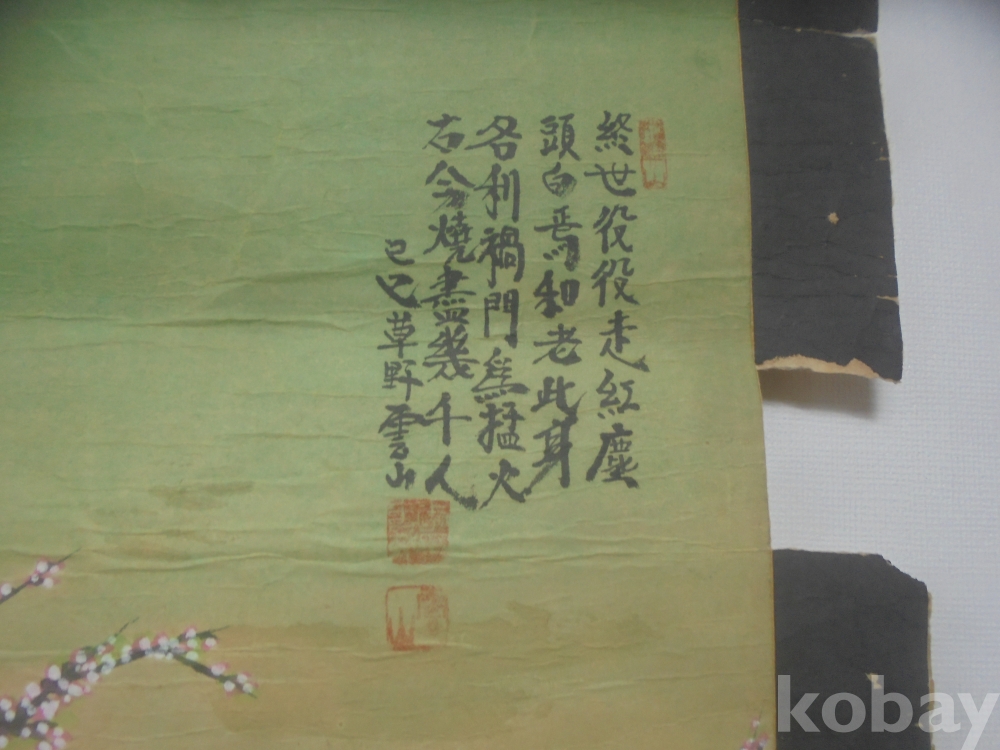 終世役役走紅塵
頭白焉知老此身
名利禍門為猛火
古今燒盡幾千人
己巳草野雲山
kobay